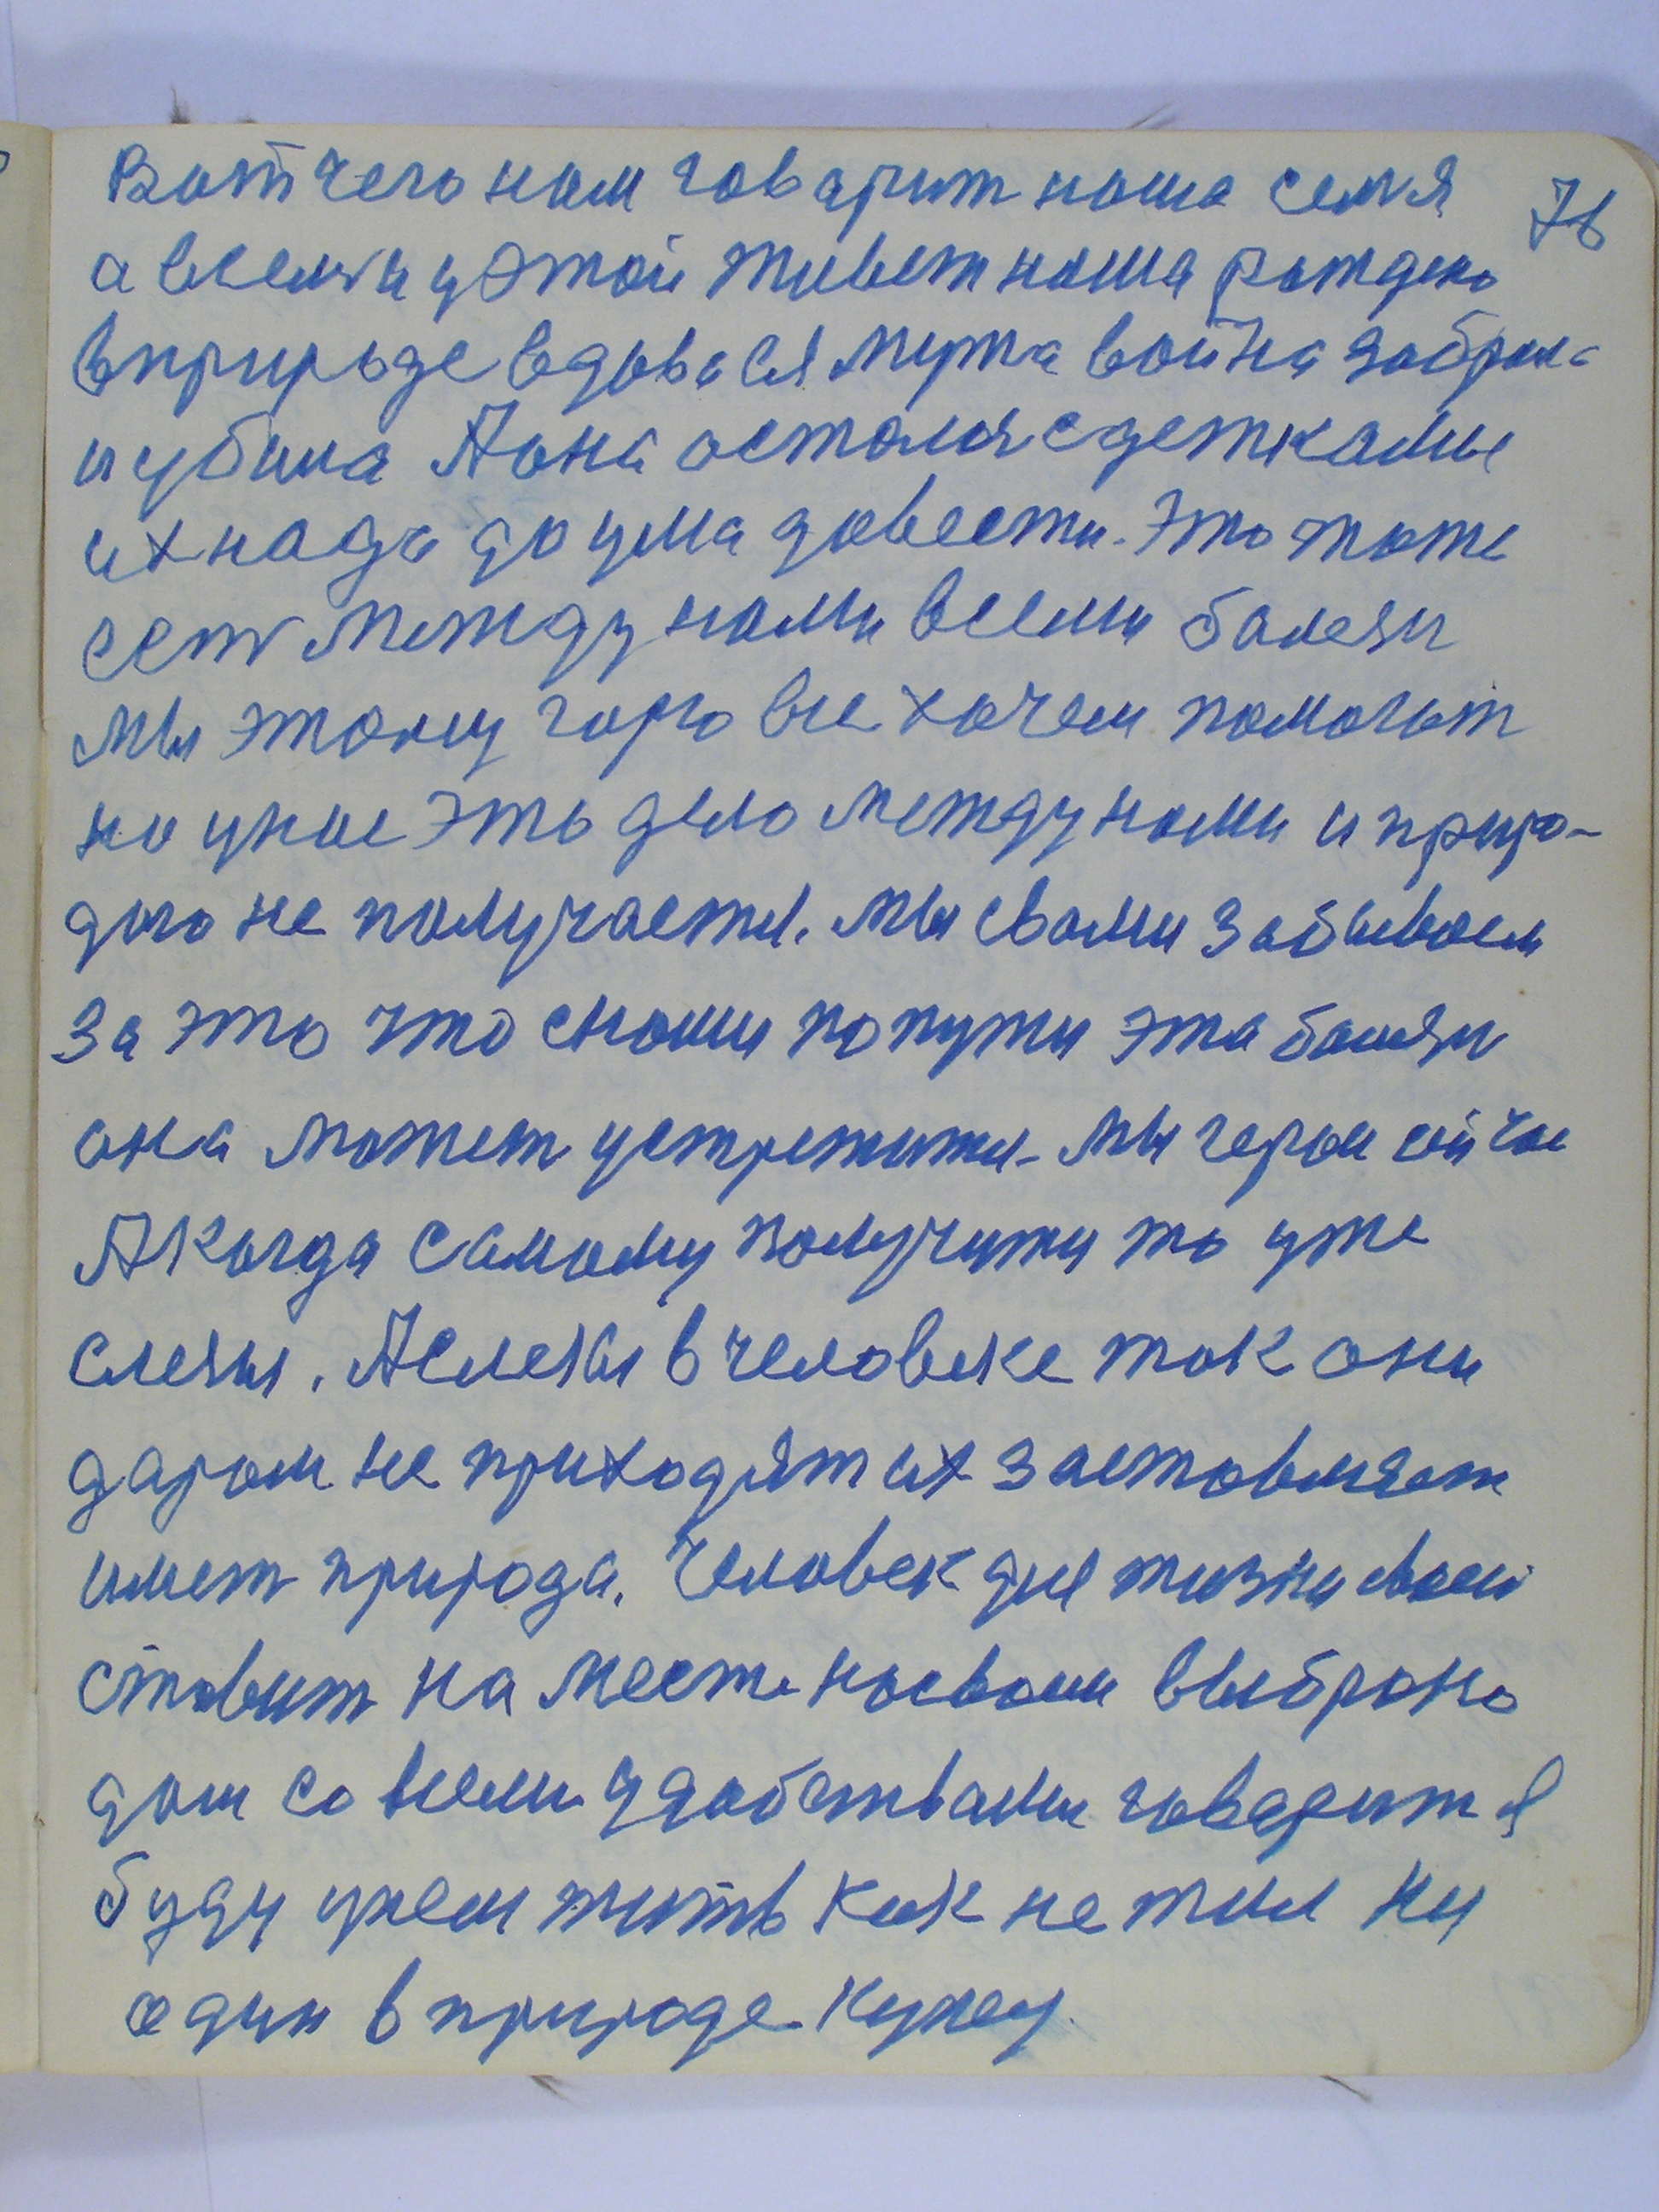 Вот чего нам говарит наша семя 76
а в семи у этой живет наша рождено
в природе вдовася мужа война забрала
и убила А она осталя с детками
их нада до ума довести. Это тоже
есть между нами всеми болезн
мы этому горю все хочем помогат
но у нас это дело между нами и приро-
дою не получаетя. мы с вами забиваем
за это что с нами по пути эта болезн
она может устретити. мы герои сийчас
А когда самому получити то уже
слезы. А слезы в человеке так они
даром не приходят их заставляет
имет природа. Человек для жизни своей
ставит на месте на своем выброно
дом со всеми удобствами говарит я
буду унем жить как не жил ни
один в природе